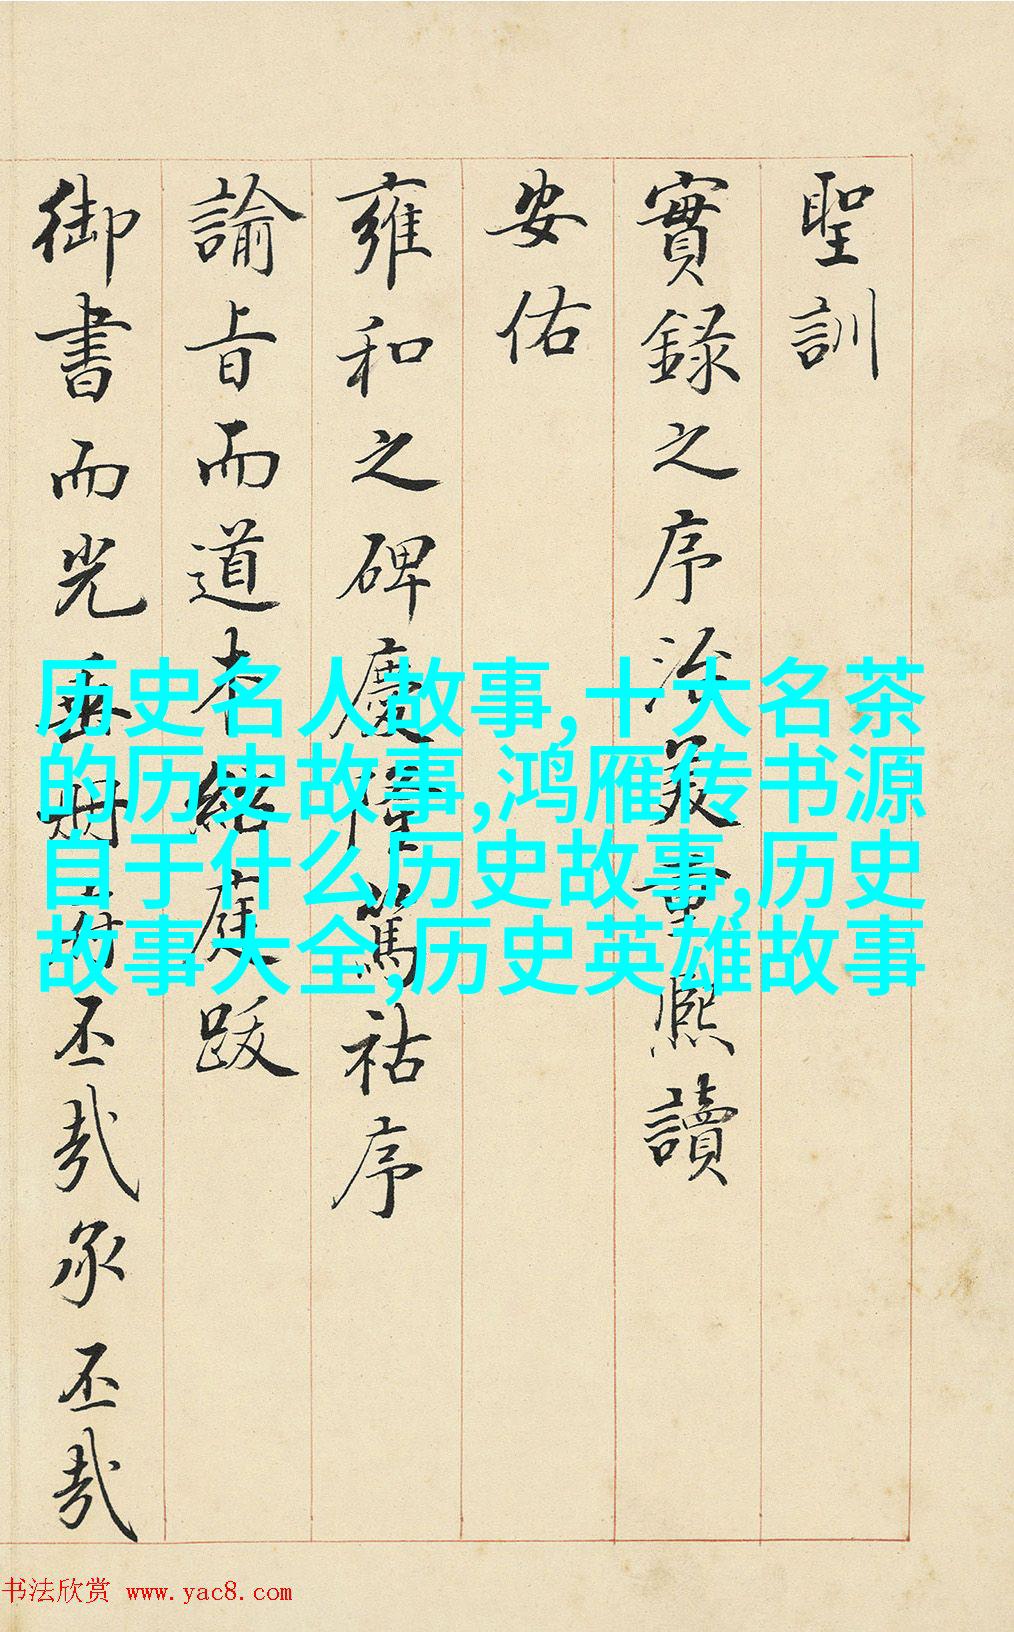 聖訓
實錄之序治美重熙讀
安佑
雍和之碑慶隆篤祜序
諭旨而道本繩庭跋
御書而光垂冊府丕哉承丕哉
历史名人故事,十大名茶
的历史故事,鸿雁传书源
自于什么历史故事,历史
故事大全,历史英雄故事
书法欣赏 www.yac8.com